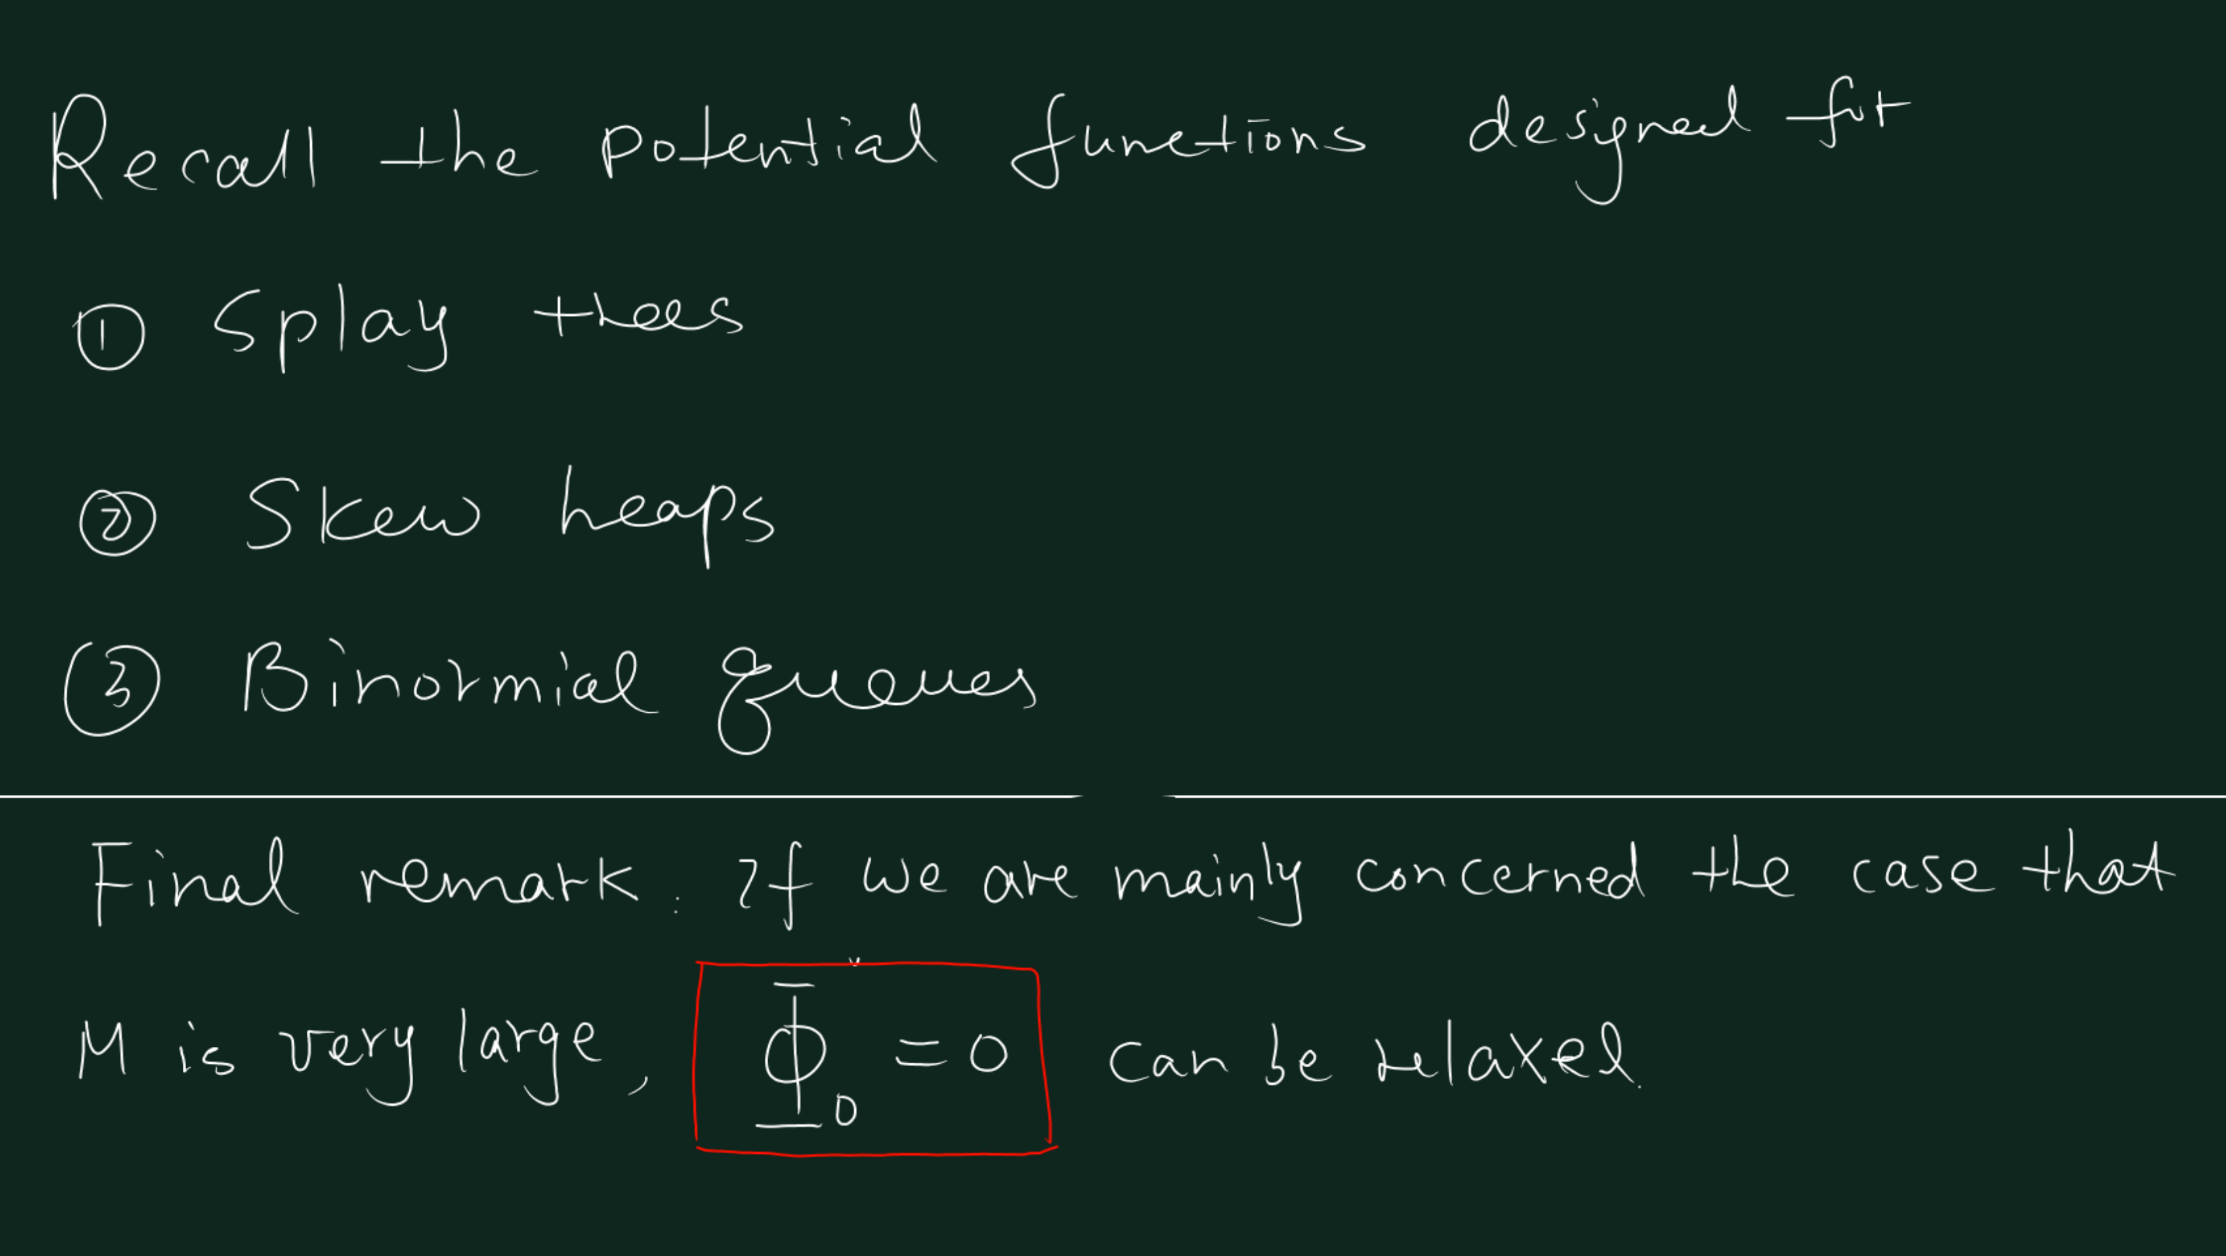 Recall the potential functions designed for
① Splay trees
② Skew heaps
③ Binormial queues
Final remark: If we are mainly concerned the case that
M is very large, Φ₀ = 0 can be relaxed.